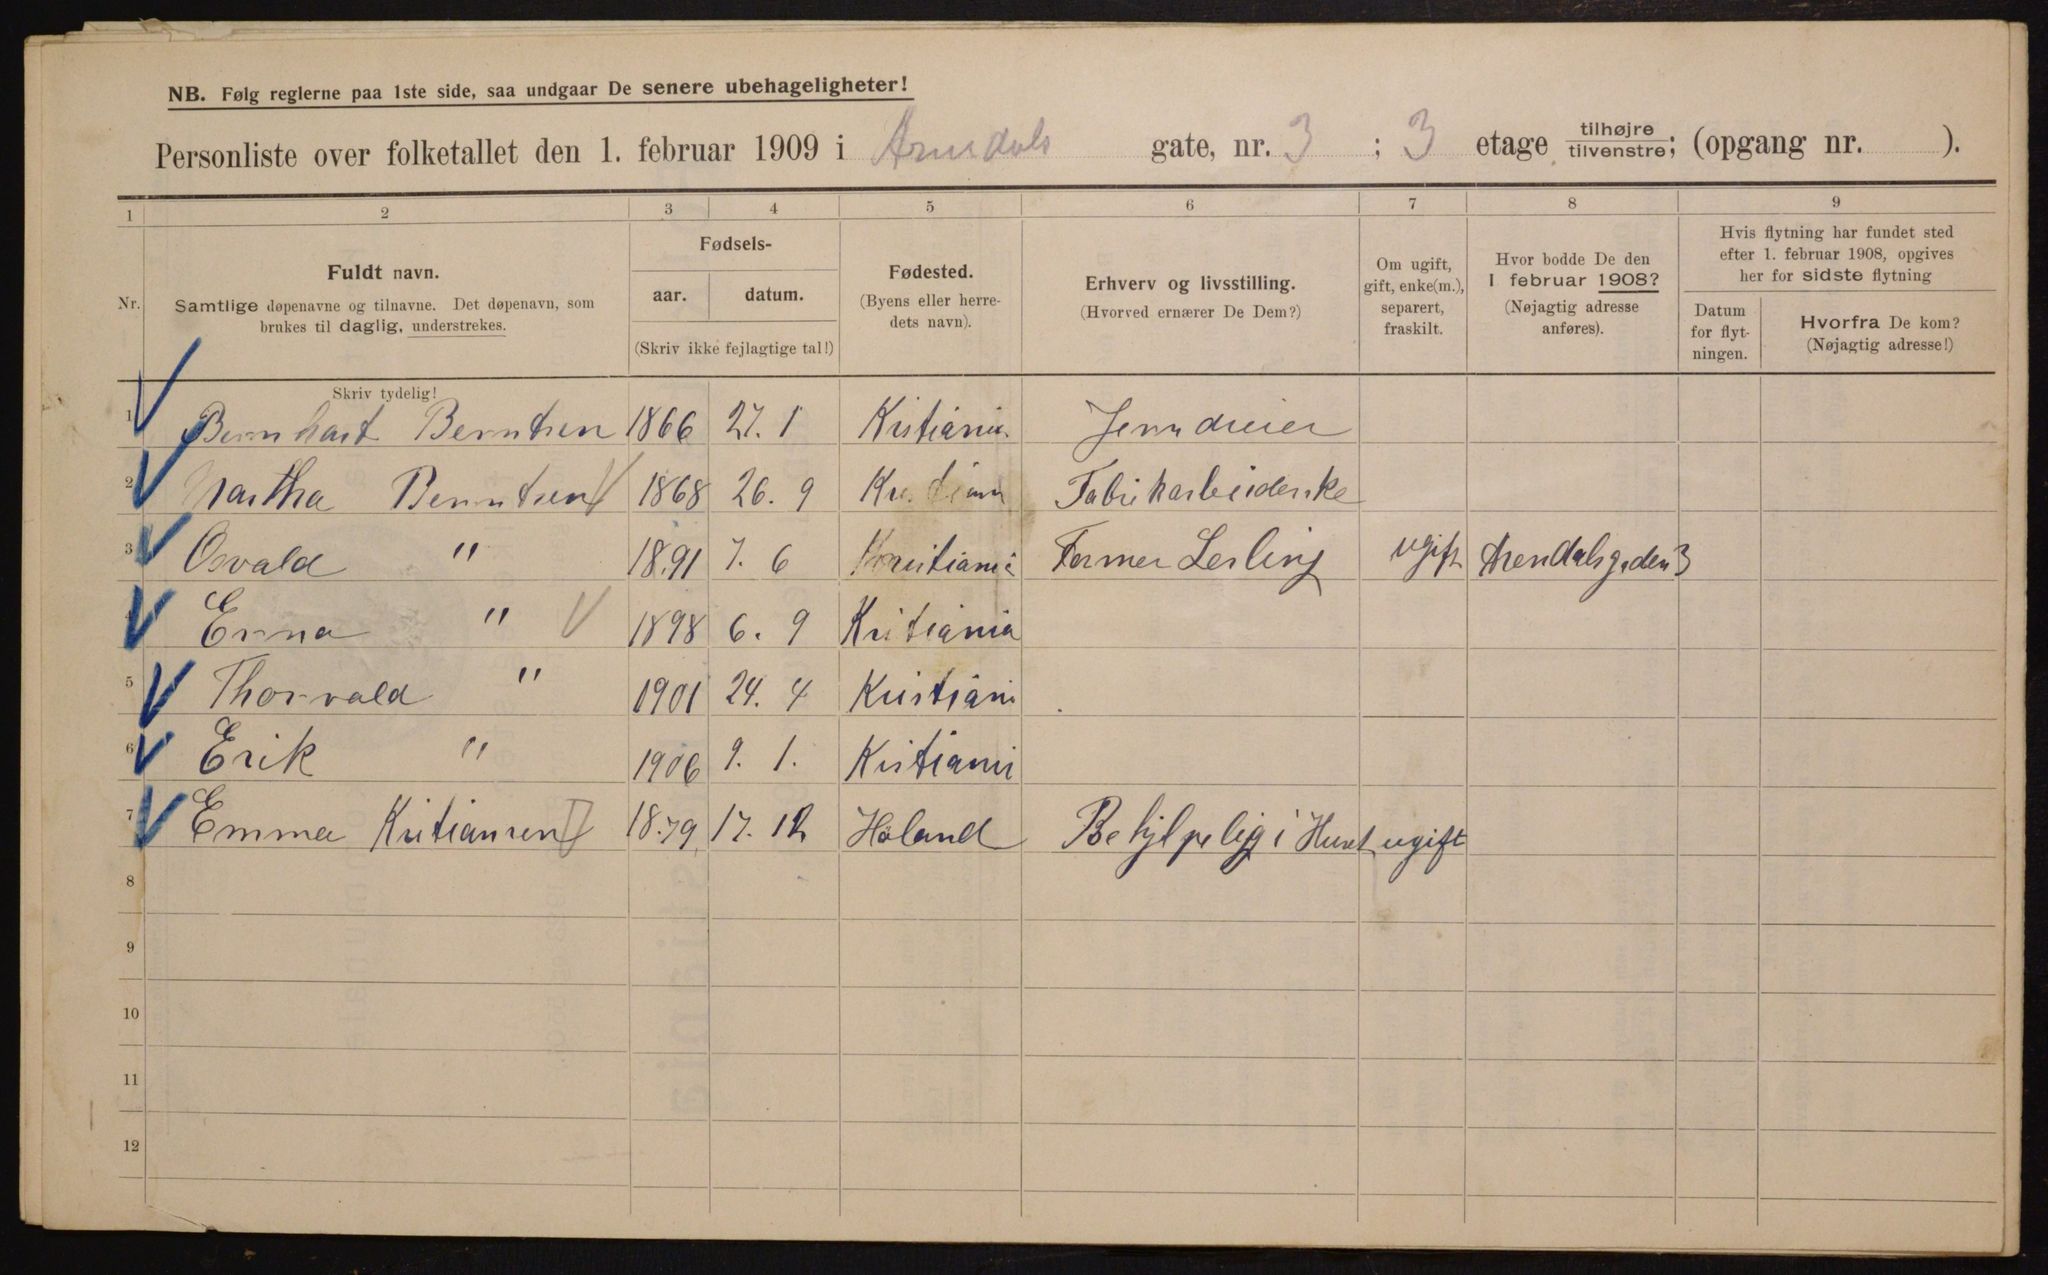 NB. Følg reglerne paa 1ste side, saa undgaar De senere ubehageligheter!
Personliste over folketallet den 1. februar 1909 i Arndals gate, nr. 3 ; 3 etage tilhøjre/tilvenstre; (opgang nr. ).
1 2 3 4 5 6 7 8 9
Nr.
Fuldt navn.
Samtlige døpenavne og tilnavne. Det døpenavn, som
brukes til daglig, understrekes.
Fødsels-
aar. datum.
(Skriv ikke fejlagtige tal!)
Fødested.
(Byens eller herre-
dets navn).
Erhverv og livsstilling.
(Hvorved ernærer De Dem?)
Om ugift,
gift, enke(m.),
separert,
fraskilt.
Hvor bodde De den
1 februar 1908?
(Nøjagtig adresse
anføres).
Hvis flytning har fundet sted
efter 1. februar 1908, opgives
her for sidste flytning
Datum
for flyt-
ningen.
Hvorfra De kom?
(Nøjagtig adresse!)
Skriv tydelig!
1 Bernhart Berntsen 1866 27. 1 Kristiania Jerndreier
2 Martha Berntsen 1868 26. 9 Fabrikarbeiderske
3 Osvald " 1891 7. 6 Kristiania Former Lerling ugift Arendalsgaden 3
4 Erna " 1898 6. 9 Kritiania
5 Thorvald " 1901 24. 4 Kristiani
6 Erik " 1906 9. 1. Kristiani
7 Emma Kritiansen 1879 17. 12 Høland Behjelpelig i Huset ugift
8
9
10
11
12